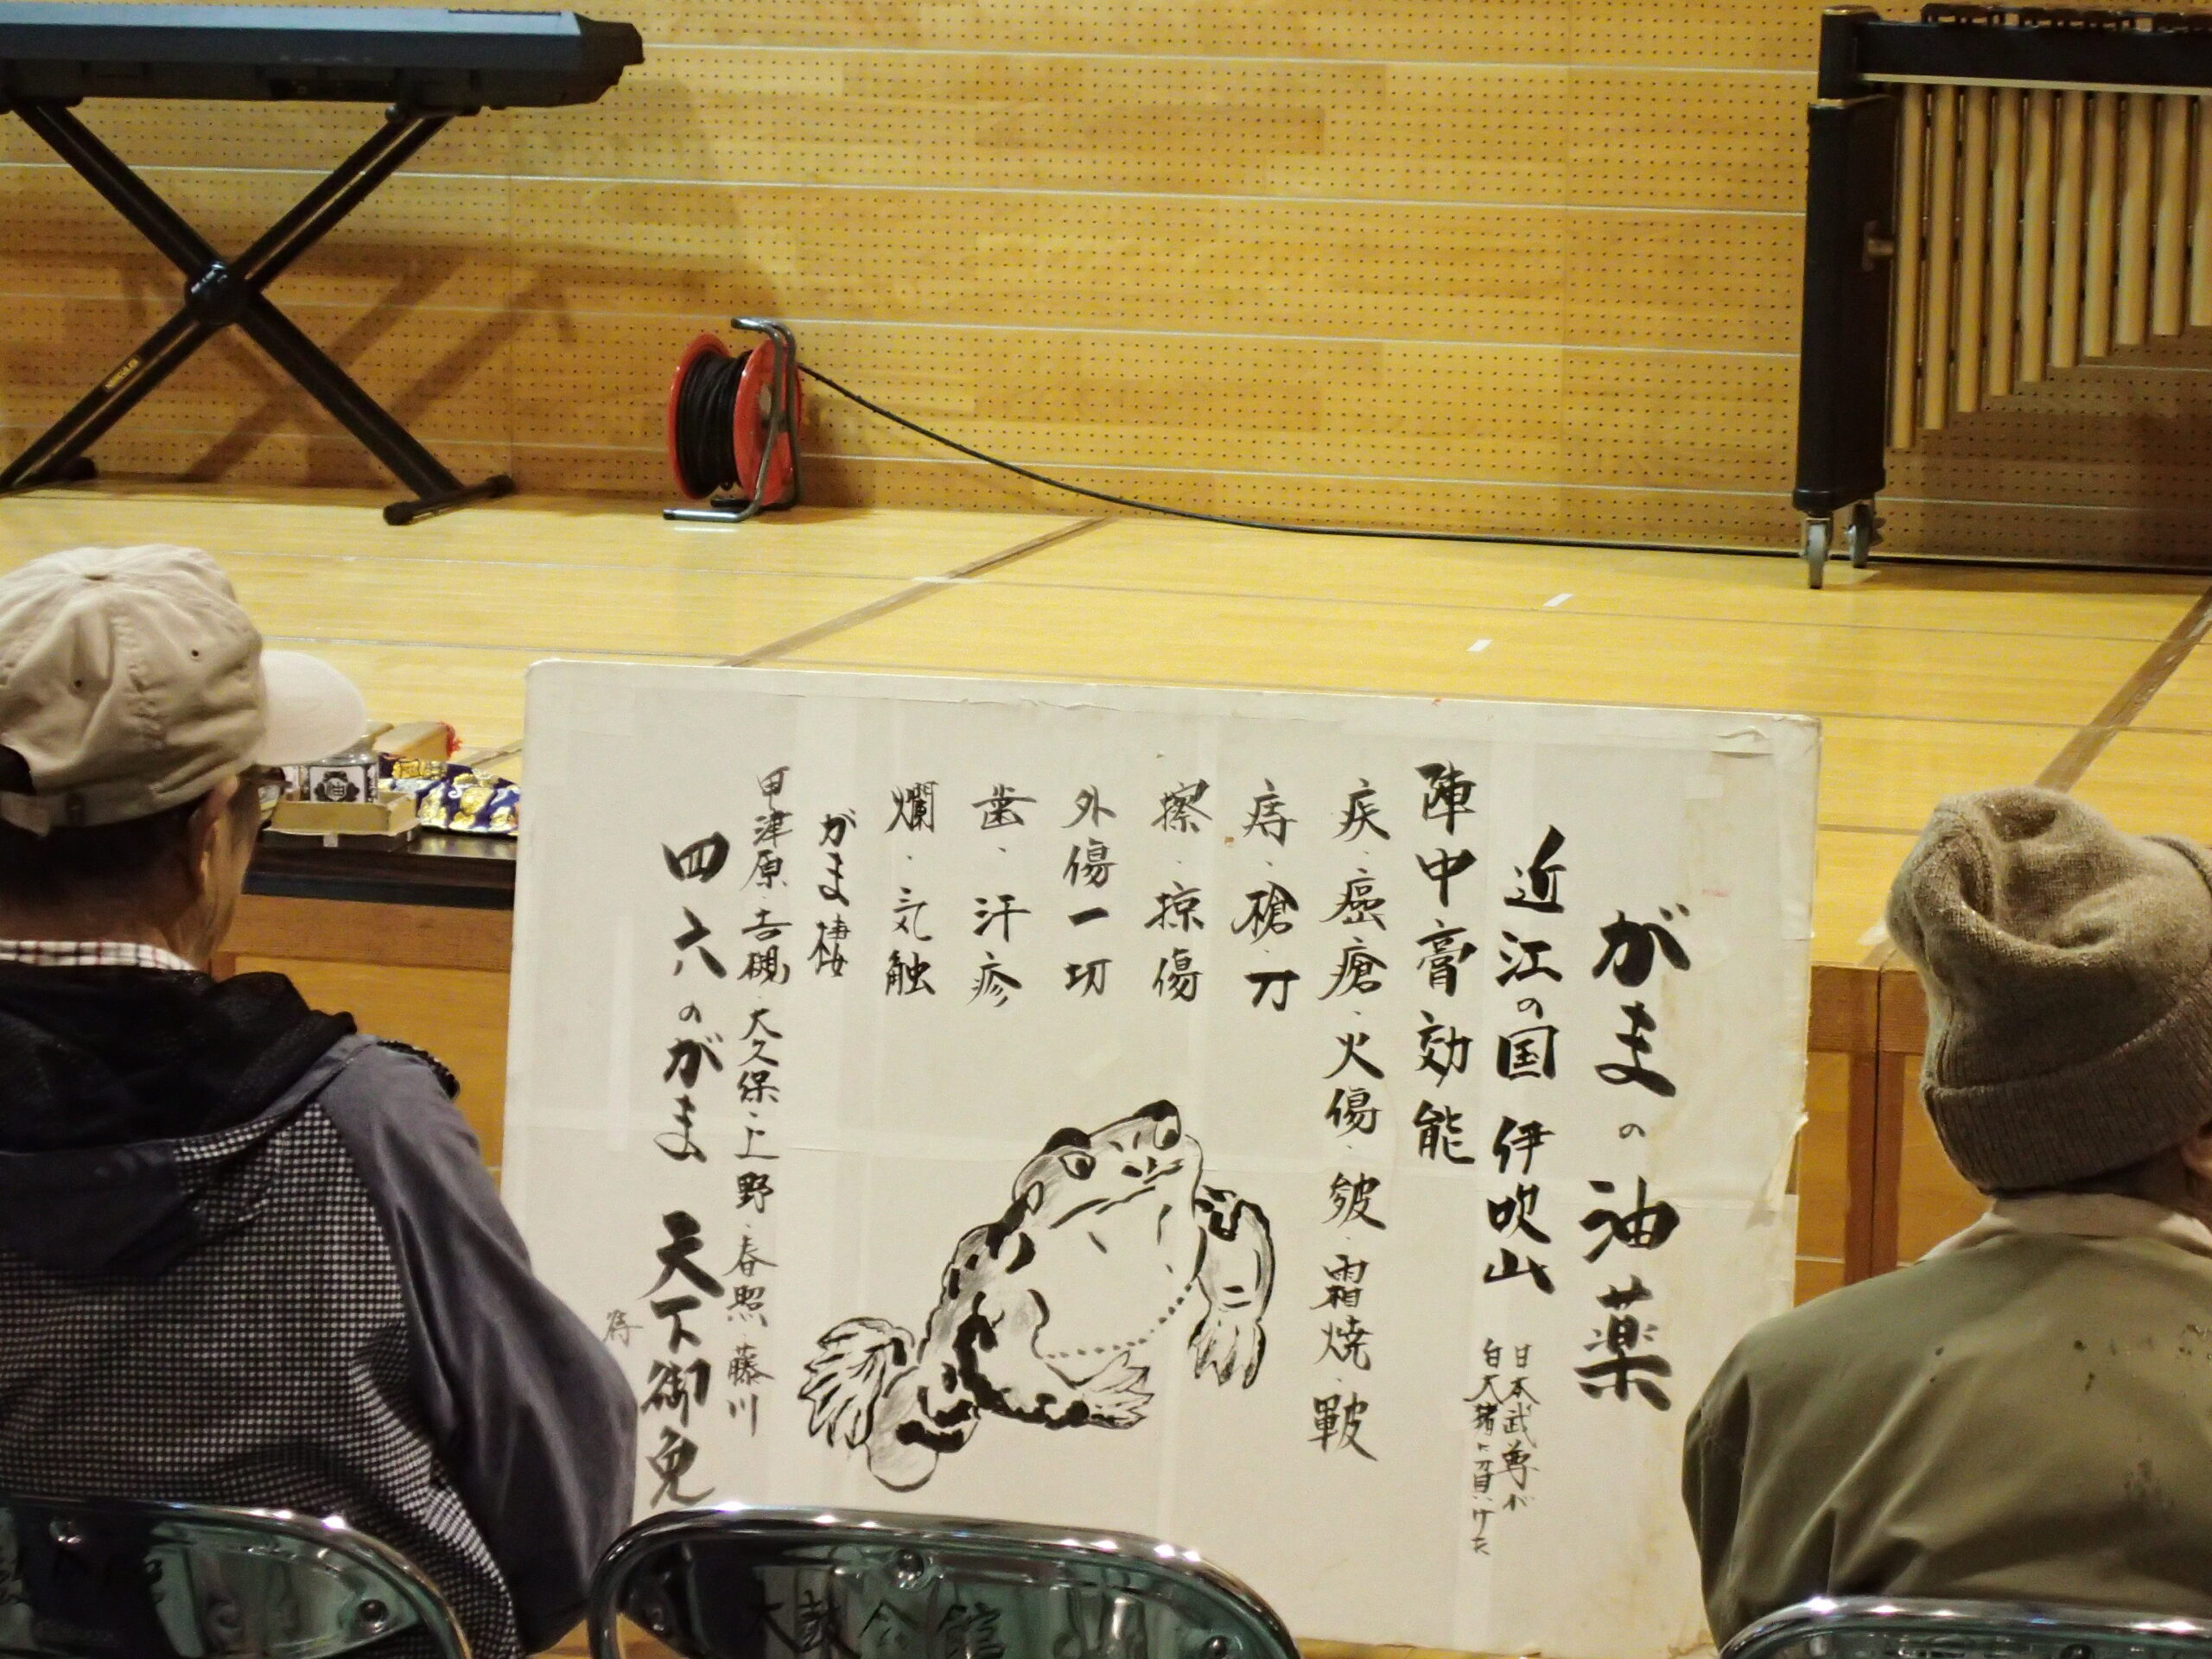 がまの油薬
近江の国 伊吹山
日本武尊が
白大猪に負けた
陣中膏効能
疾・癌瘡・火傷・皴・霜焼・皸
痔・槍・刀
擦・掠傷
外傷一切
歯・汗疹
爛・気触
がま棲
甲津原・吉槻・大久保・上野・春照・藤川
四六のがま 天下御免
油
太鼓会館